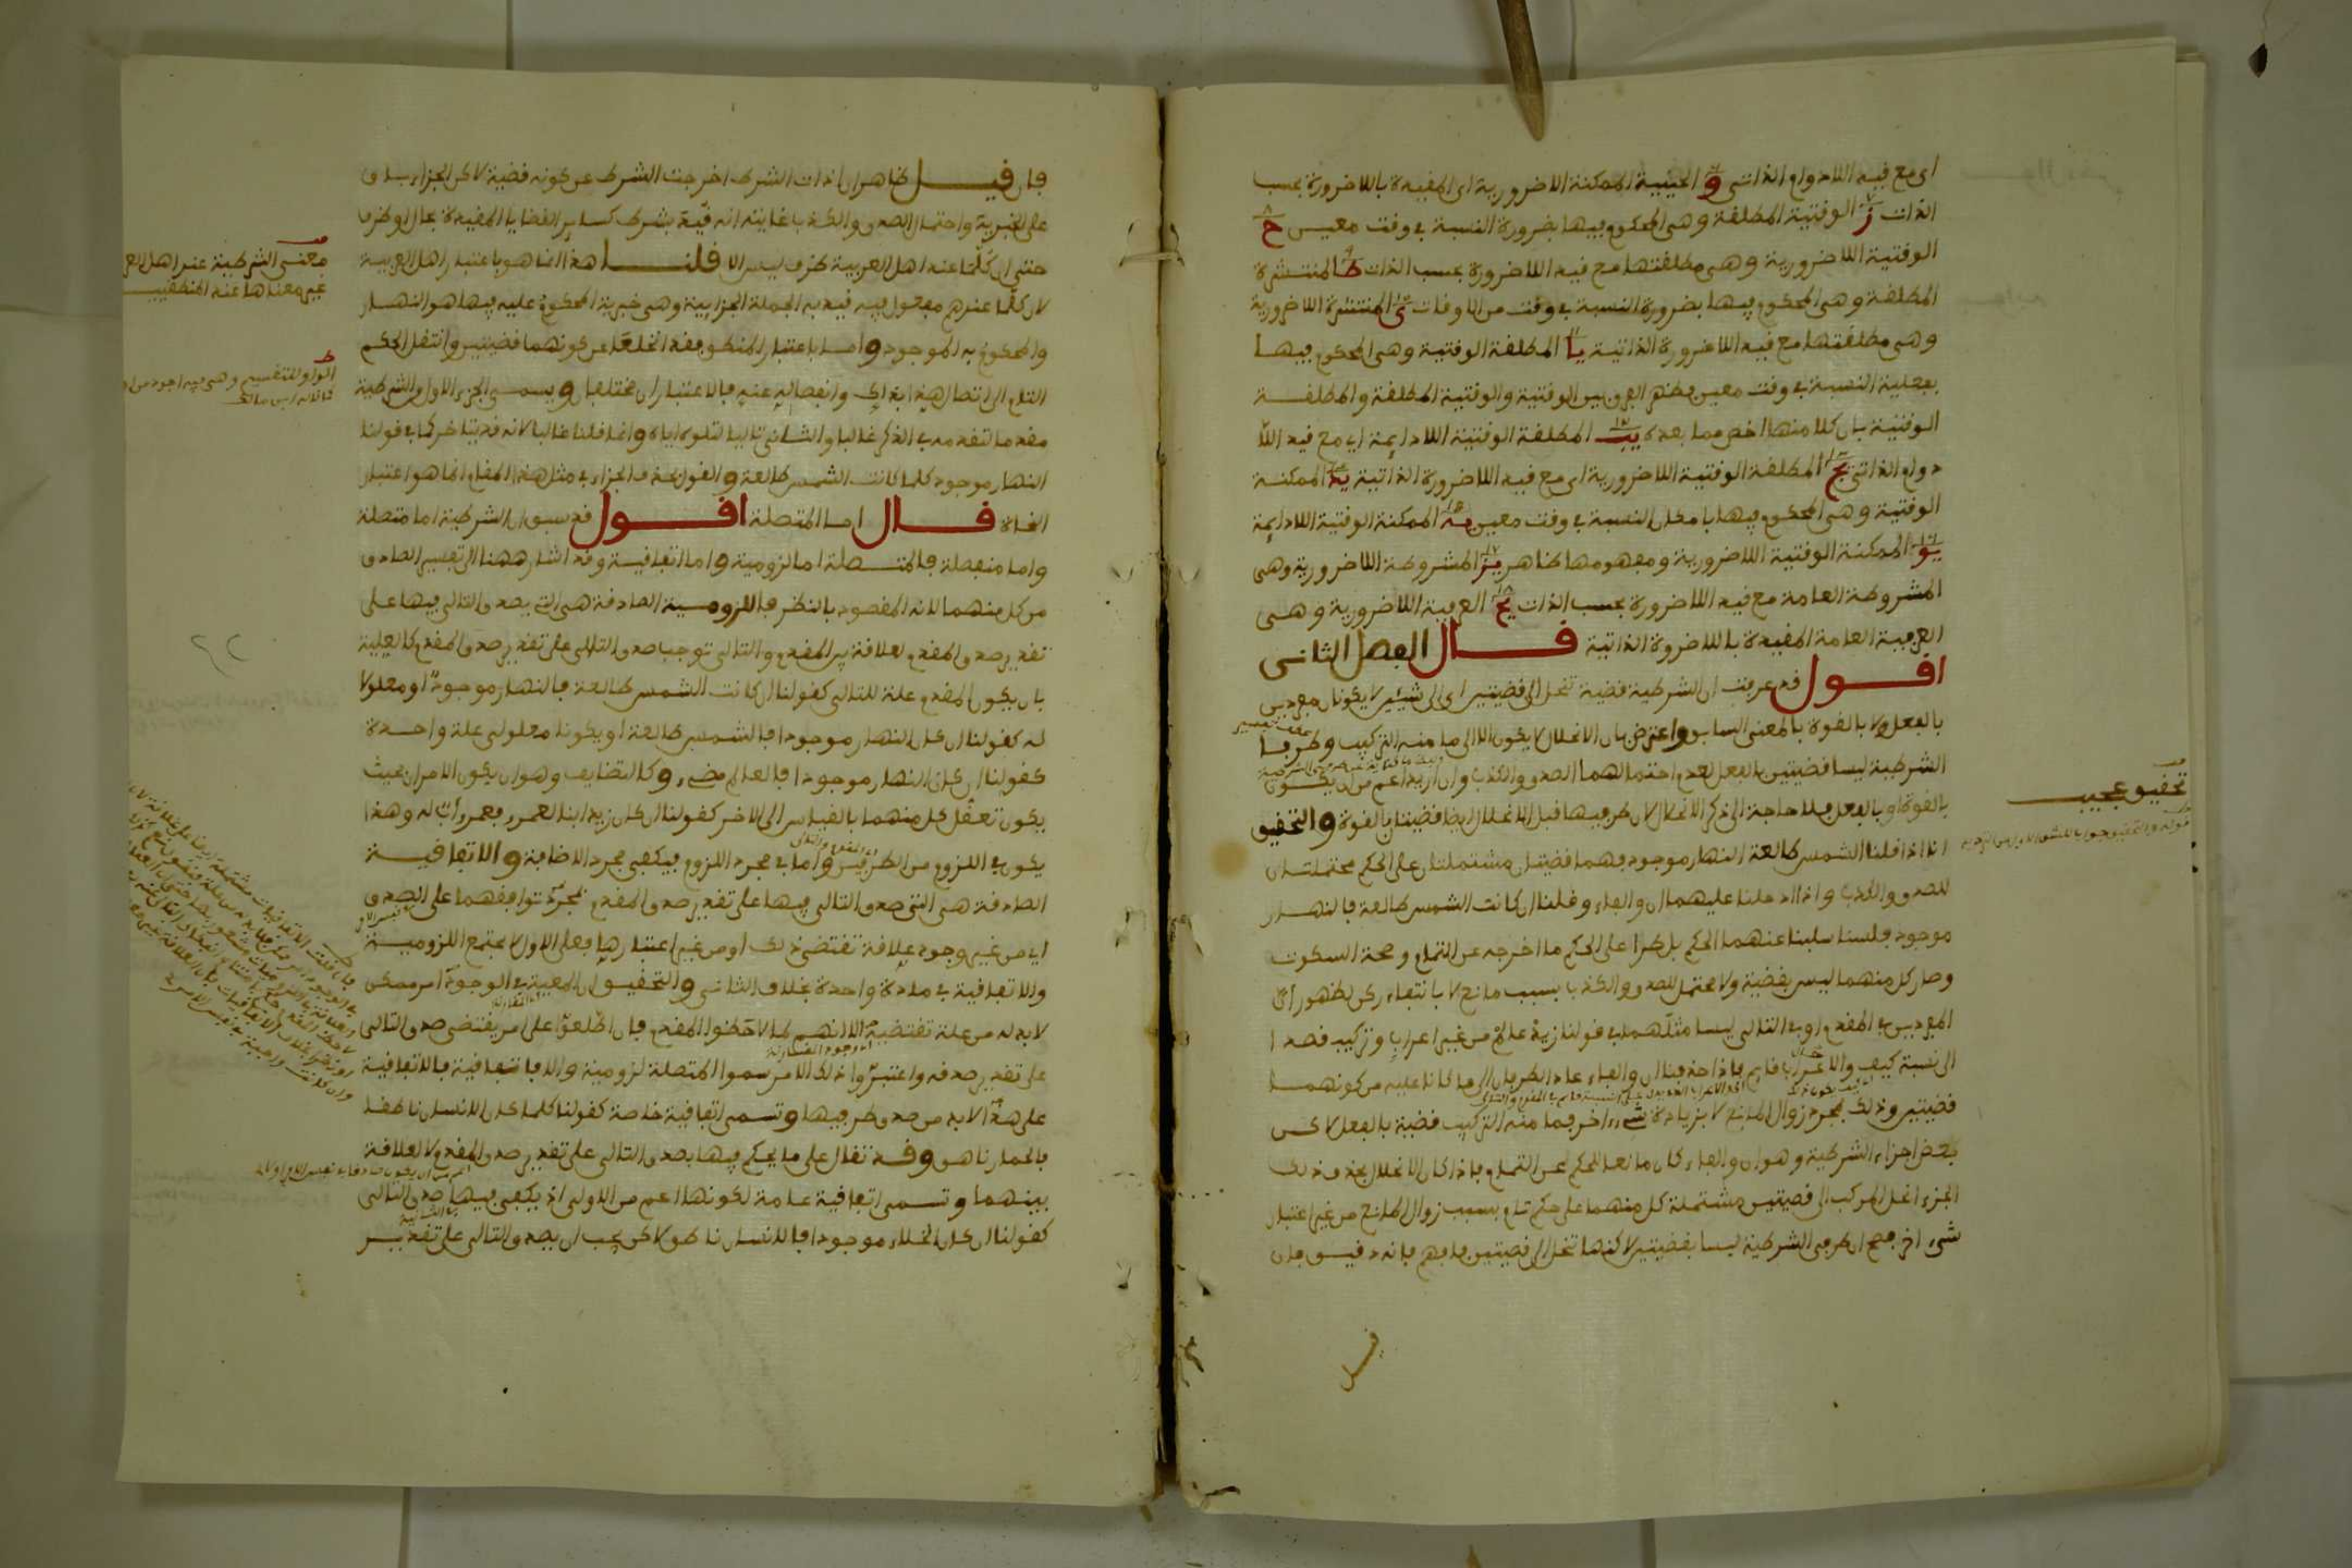 اى مع قيد اللادوام الذاتى و الحينية الممكنة اللاضرورية اى المقيدة باللاضرورة بحسب
الذات ز الوقتية المطلقة وهى المحكوم فيها بضرورة النسبة فى وقت معين ح
الوقتية اللاضرورية وهى مطلقتها مع قيد اللاضرورة بحسب الذات ط المنتشرة
المطلقة وهى المحكوم فيها بضرورة النسبة فى وقت من الاوقات ى المنتشرة اللاضرورية
وهى مطلقتها مع قيد اللاضرورة الذاتية يا المطلقة الوقتية وهى المحكوم فيها
بفعلية النسبة فى وقت معين فظهر الفرق بين الوقتية والوقتية المطلقة والمطلقة
الوقتية بان كلا منها اخص مما بعده يب المطلقة الوقتية اللادايمة اى مع قيد اللا
دوام الذاتى يج المطلقة الوقتية اللاضرورية اى مع قيد اللاضرورة الذاتية يد الممكنة
الوقتية وهى المحكوم فيها بامكان النسبة فى وقت معين يه الممكنة الوقتية اللادايمة
يو الممكنة الوقتية اللاضرورية ومفهومها ظاهر يز المشروطة اللاضرورية وهى
المشروطة العامة مع قيد اللاضرورة بحسب الذات يح العرفية اللاضرورية وهى
العرفية العامة المقيدة باللاضرورة الذاتية قال الفصل الثانى
اقول قد عرفت ان الشرطية قضية تنحل الى قضيتين اى الى شيئين لا يكونان مفردين
بالفعل ولا بالقوة بالمعنى السابق واعترض بان الانحلال لا يكون الا الى ما منه التركيب وطرفا
الشرطية ليسا قضيتين بالفعل لعدم احتمالهما الصدق والكذب وان اريد اعم من ان يكون
بالقوة او بالفعل فلا حاجة الى ذكر الانحلال لان طرفيها قبل الانحلال ايضا قضيتان بالقوة والتحقيق
انا اذا قلنا الشمس طالعة النهار موجود فهما قضيتان مشتملتان على الحكم محتملتان
للصدق والكذب واذا ادخلنا عليهما ان والفاء وقلنا ان كانت الشمس طالعة فالنهار
موجود فلسنا سلبنا عنهما الحكم بل طرا على الحكم ما اخرجه عن التمام وصحة السكوت
وصار كل منهما ليس بقضية ولا محتمل للصدق والكذب بسبب مانع لا بانتفاء ركن لظهور ان
المفردين فى المقدم او فى التالى ليسا مثلهما فى قولنا زيد عالم من غير اعراب وتركيب قصدا
الى نسبة كيف والاعراب قايم فاذا حذفنا ان والفاء عاد الطرفان الى ما كانا عليه من كونهما
قضيتين وذلك بمجرد زوال المانع لا بزيادة شىء اخر فما منه التركيب قضية بالفعل لاكن
بعض اجزاء الشرطية وهو ان والفاء كان مانعا للحكم عن التمام فاذا كان الانحلال بحذف ذلك
الجزء انحل المركب الى قضيتين مشتملة كل منهما على حكم تام بسبب زوال المانع من غير اعتبار
شىء اخر فصح ان طرفى الشرطية ليسا بقضيتين لاكنها تنحل الى قضيتين فافهم فانه دقيق فان
تحقيق عجيب
قيل
فان قيل ظاهر ان اداة الشرط اخرجت الشرط عن كونه قضية لاكن الجزاء باق
على الخبرية واحتمال الصدق والكذب غايته انه قيد بشرط كساير القضايا المقيدة بحال او ظرف
حتى ان كلما عند اهل العربية ظرف ليس الا قلنا هذا انما هو باعتبار اهل العربية
لان كلما عندهم مفعول فيه قيد به الجملة الجزايية وهى خبرية المحكوم عليه فيها هو النهار
والمحكوم به الموجود واما باعتبار المنطق فقد انخلعا عن كونهما قضيتين وانتقل الحكم
التام الى اتصال هذا بذاك وانفصاله عنه فالاعتباران مختلفان ويسمى الجزء الاول من الشرطية
مقدما لتقدمه فى الذكر غالبا والثانى تاليا لتلوه اياه وانما قلنا غالبا لانه قد يتاخر كما فى قولنا
النهار موجود كلما كانت الشمس طالعة والقول بحذف الجزاء فى مثل هذا المقام انما هو اعتبار
النحاة قال اما المتصلة اقول قد سبق ان الشرطية اما متصلة
واما منفصلة فالمتصلة اما لزومية واما اتفاقية وقد اشار ههنا الى تفسير الصادق
من كل منهما لانه المقصود بالنظر فاللزومية الصادقة هى التى يصدق التالى فيها على
تقدير صدق المقدم لعلاقة بين المقدم والتالى توجب صدق التالى على تقدير صدق المقدم كالعلية
بان يكون المقدم علة للتالى كقولنا ان كانت الشمس طالعة فالنهار موجود او معلولا
له كقولنا ان كان النهار موجودا فالشمس طالعة او يكونا معلولى علة واحدة
كقولنا ان كان النهار موجودا فالعالم مضىء وكالتضايف وهو ان يكون الامران بحيث
يكون تعقل كل منهما بالقياس الى الاخر كقولنا ان كان زيد ابنا لعمرو فعمرو اب له وهذا
يكون فى اللزوم من الطرفين واما فى مجرد اللزوم فيكفى مجرد الاضافة والاتفاقية
الصادقة هى التى صدق التالى فيها على تقدير صدق المقدم بمجرد توافقهما على الصدق
اى من غير وجود علاقة تقتضى ذلك او من غير اعتبارها فعلى الاول لا تجتمع اللزومية
والاتفاقية فى مادة واحدة بخلاف الثانى والتحقيق ان المعية فى الوجود امر ممكن
لا بد له من علة تقتضيه الا انهم لما لاحظوا المقدم فان اطلعوا على امر يقتضى صدق التالى
على تقدير صدقه واعتبروا ذلك الامر سموا المتصلة لزومية والا فاتفاقية فالاتفاقية
على هذا لا بد من صدق طرفيها وتسمى اتفاقية خاصة كقولنا كلما كان الانسان ناطقا
فالحمار ناهق وقد تقال على ما يحكم فيها بصدق التالى على تقدير صدق المقدم لا لعلاقة
بينهما وتسمى اتفاقية عامة لكونها اعم من الاولى اذ يكفى فيها صدق التالى
كقولنا ان كان الخلاء موجودا فالانسان ناطق لاكن يجب ان يصدق التالى على تقدير
معنى الشرطية عند اهل العر
غير معناها عند المنطقيين
الواو للتقسيم وهى فيه اجود من او
قاله ابن مالك